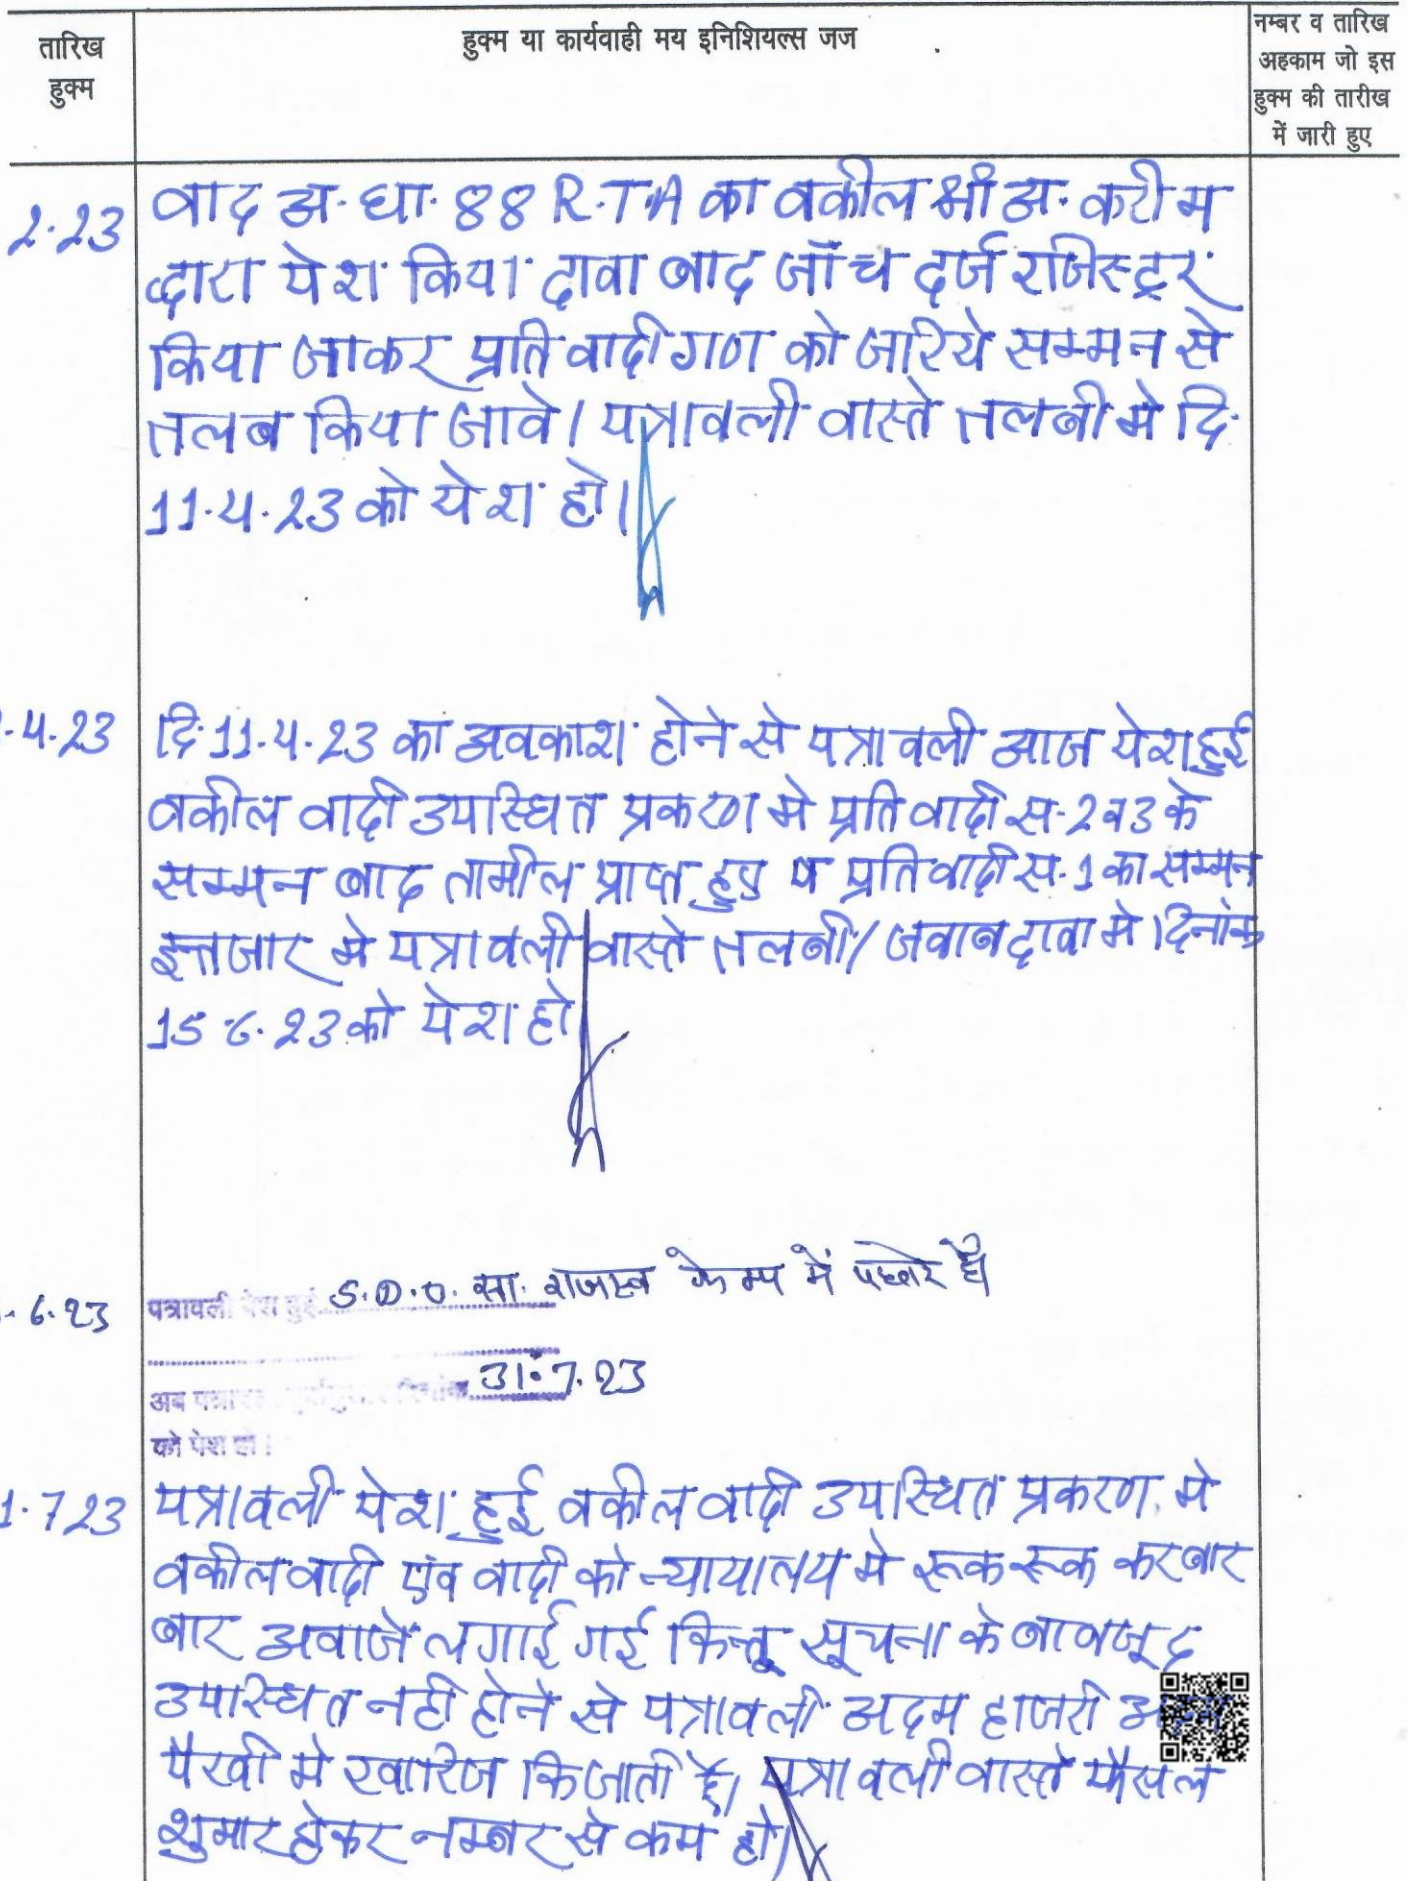 तारिख
हुक्म
हुक्म या कार्यवाही मय इनिशियल्स जज
नम्बर व तारिख
अहकाम जो इस
हुक्म की तारीख
में जारी हुए
2.23
वाद अ. धा. 88 R.T.A का वकील श्री अ. करीम
द्वारा पेश किया दावा बाद जाँच दर्ज रजिस्ट्रर
किया जाकर प्रतिवादीगण को जरिये सम्मन से
तलब किया जावे। पत्रावली वास्ते तलबी मे दि.
11.4.23 को पेश हो।
.4.23
दि. 11.4.23 का अवकाश होने से पत्रावली आज पेश हुई
वकील वादी उपस्थित प्रकरण मे प्रतिवादी स. 2 व 3 के
सम्मन बाद तामील प्राप्त हुए व प्रतिवादी स. 1 का सम्मन
इन्तजार मे पत्रावली वास्ते तलबी/जवाबदावा मे दिनांक
15.6.23 को पेश हो
.6.23
पत्रावली पेश हुई S.D.O. सा. राजस्व केम्प में पधारे हैं
अब दिनांक 31.7.23
को पेश हो।
1.7 23
पत्रावली पेश हुई वकील वादी उपस्थित प्रकरण मे
वकील वादी एंव वादी को न्यायालय मे रूक रूक कर बार
बार अवाजे लगाई गई किन्तू सूचना के बावजूद
उपस्थित नही होने से पत्रावली अदम हाजरी
पैरवी मे खारिज कि जाती है। पत्रावली वास्ते फैसल
शुमार होकर नम्बर से कम हो।